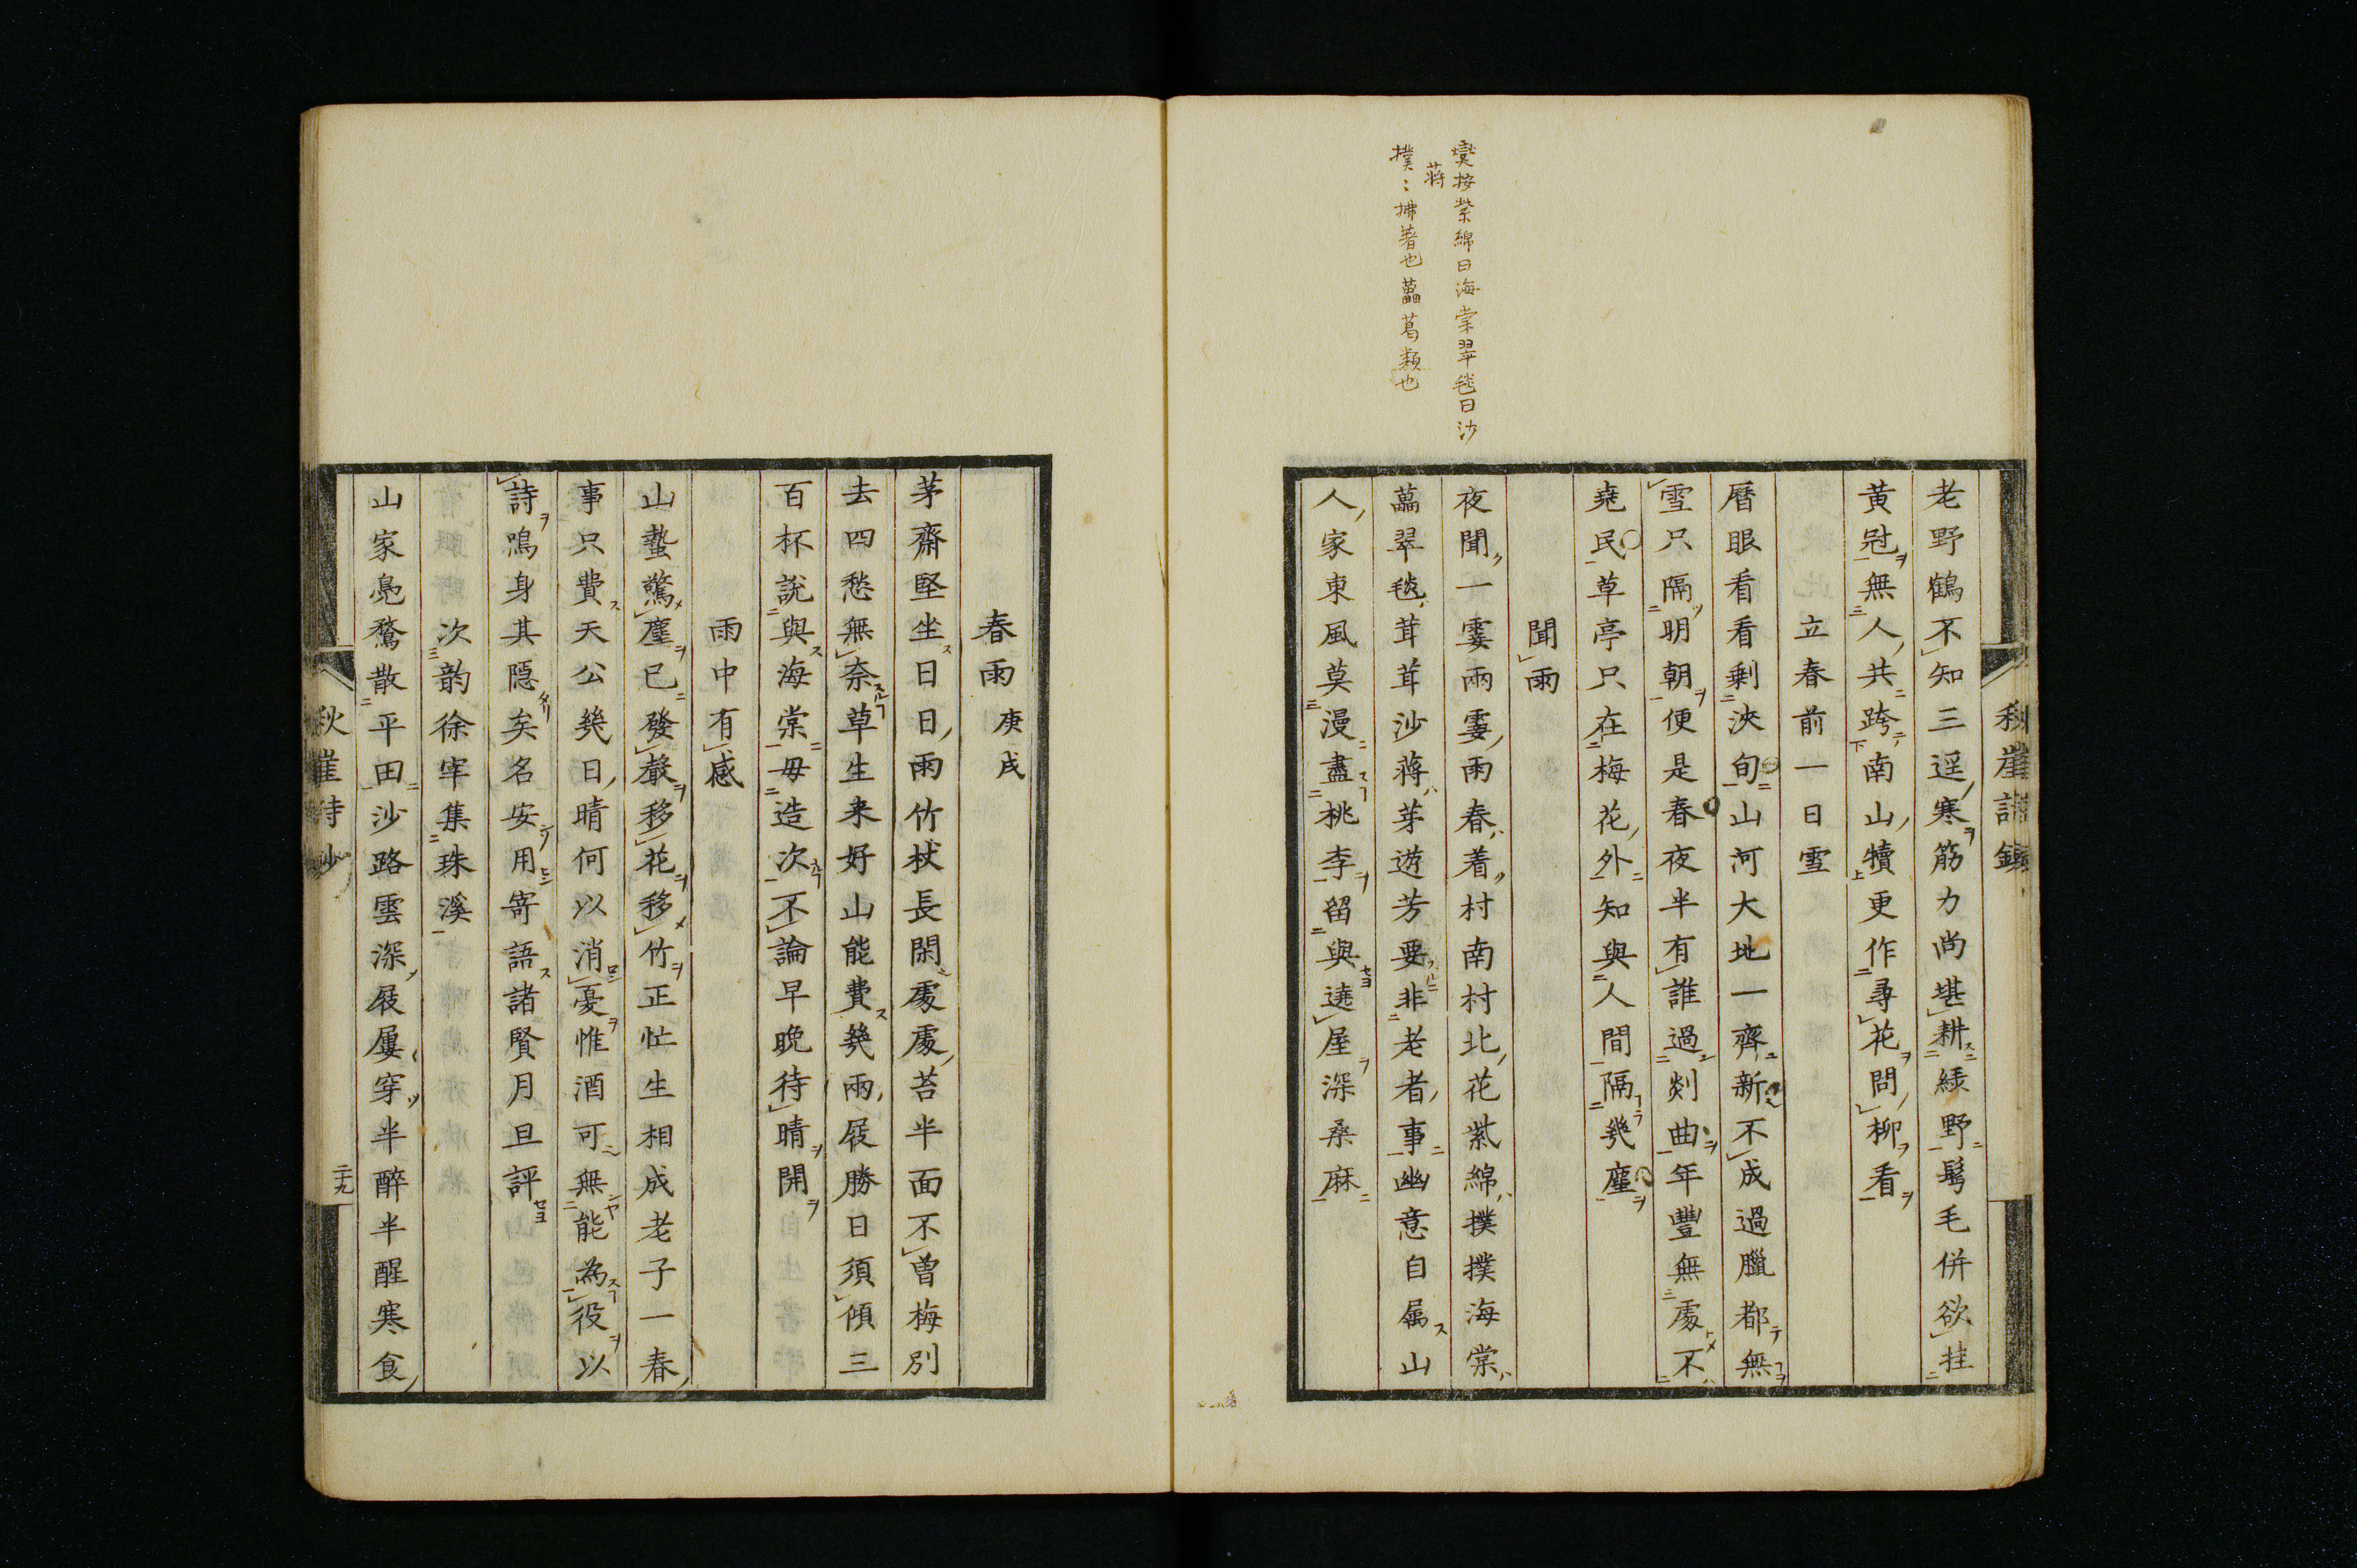 燮按紫綿曰海棠翠毯曰沙
蒋
撲〻拂著也藟葛類也
老野鶴不知三逕寒筋力尚堪耕綠野髩毛併欲挂
黃冠無人共跨南山犢更作尋花問柳看
立春前一日雪
曆眼看看剩浹旬山河大地一齊新不成過臘都無
雪只隔明朝便是春夜半有誰過剡曲年豐無處不
堯民草亭只在梅花外知與人間隔幾塵
聞雨
夜聞一霎兩霎雨春着村南村北花紫綿撲撲海棠
藟翠毯茸茸沙蒋芽遊芳要非老者事幽意自属山
人家東風莫漫盡桃李留與遶屋深桑麻
春雨 庚戌
茅齋堅坐日日雨竹杖長閑處處苔半面不曾梅別
去四愁無奈草生来好山能費幾兩屐勝日須傾三
百杯說與海棠毋造次不論早晚待晴開
雨中有感
山蟄驚塵已發聲移花移竹正忙生相成老子一春
事只費天公幾日晴何以消憂惟酒可無能為役以
詩鳴身其隠矣名安用寄語諸賢月旦評
次韵徐宰集珠溪
山家鳬鶩散平田沙路雲深屐屢穿半醉半醒寒食
秋崖詩鈔
二十九